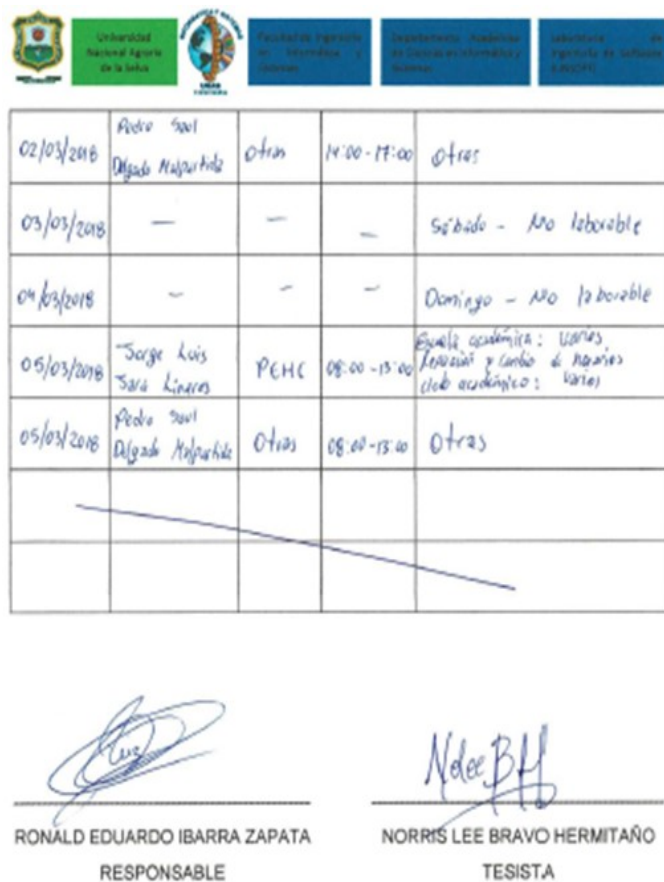 Universidad
Nacional Agraria
de la Selva
Facultad de Ingeniería
en Informática y
Sistemas
Departamento Académico
de Ciencias en Informática y
Sistemas
Laboratorio de
Ingeniería de Software
02/03/2018 Pedro Saul Delgado Malpartida Otras 14:00-17:00 Otras
03/03/2018 — — — Sábado - No laborable
04/03/2018 — — — Domingo - No laborable
05/03/2018 Jorge Luis Sara Linares PEHC 08:00-13:00 Escuela académica: Varios
y cambio de horarios
académico: Varios
05/03/2018 Pedro Saul Delgado Malpartida Otras 08:00-13:00 Otras
RONALD EDUARDO IBARRA ZAPATA
RESPONSABLE
NORRIS LEE BRAVO HERMITAÑO
TESISTA